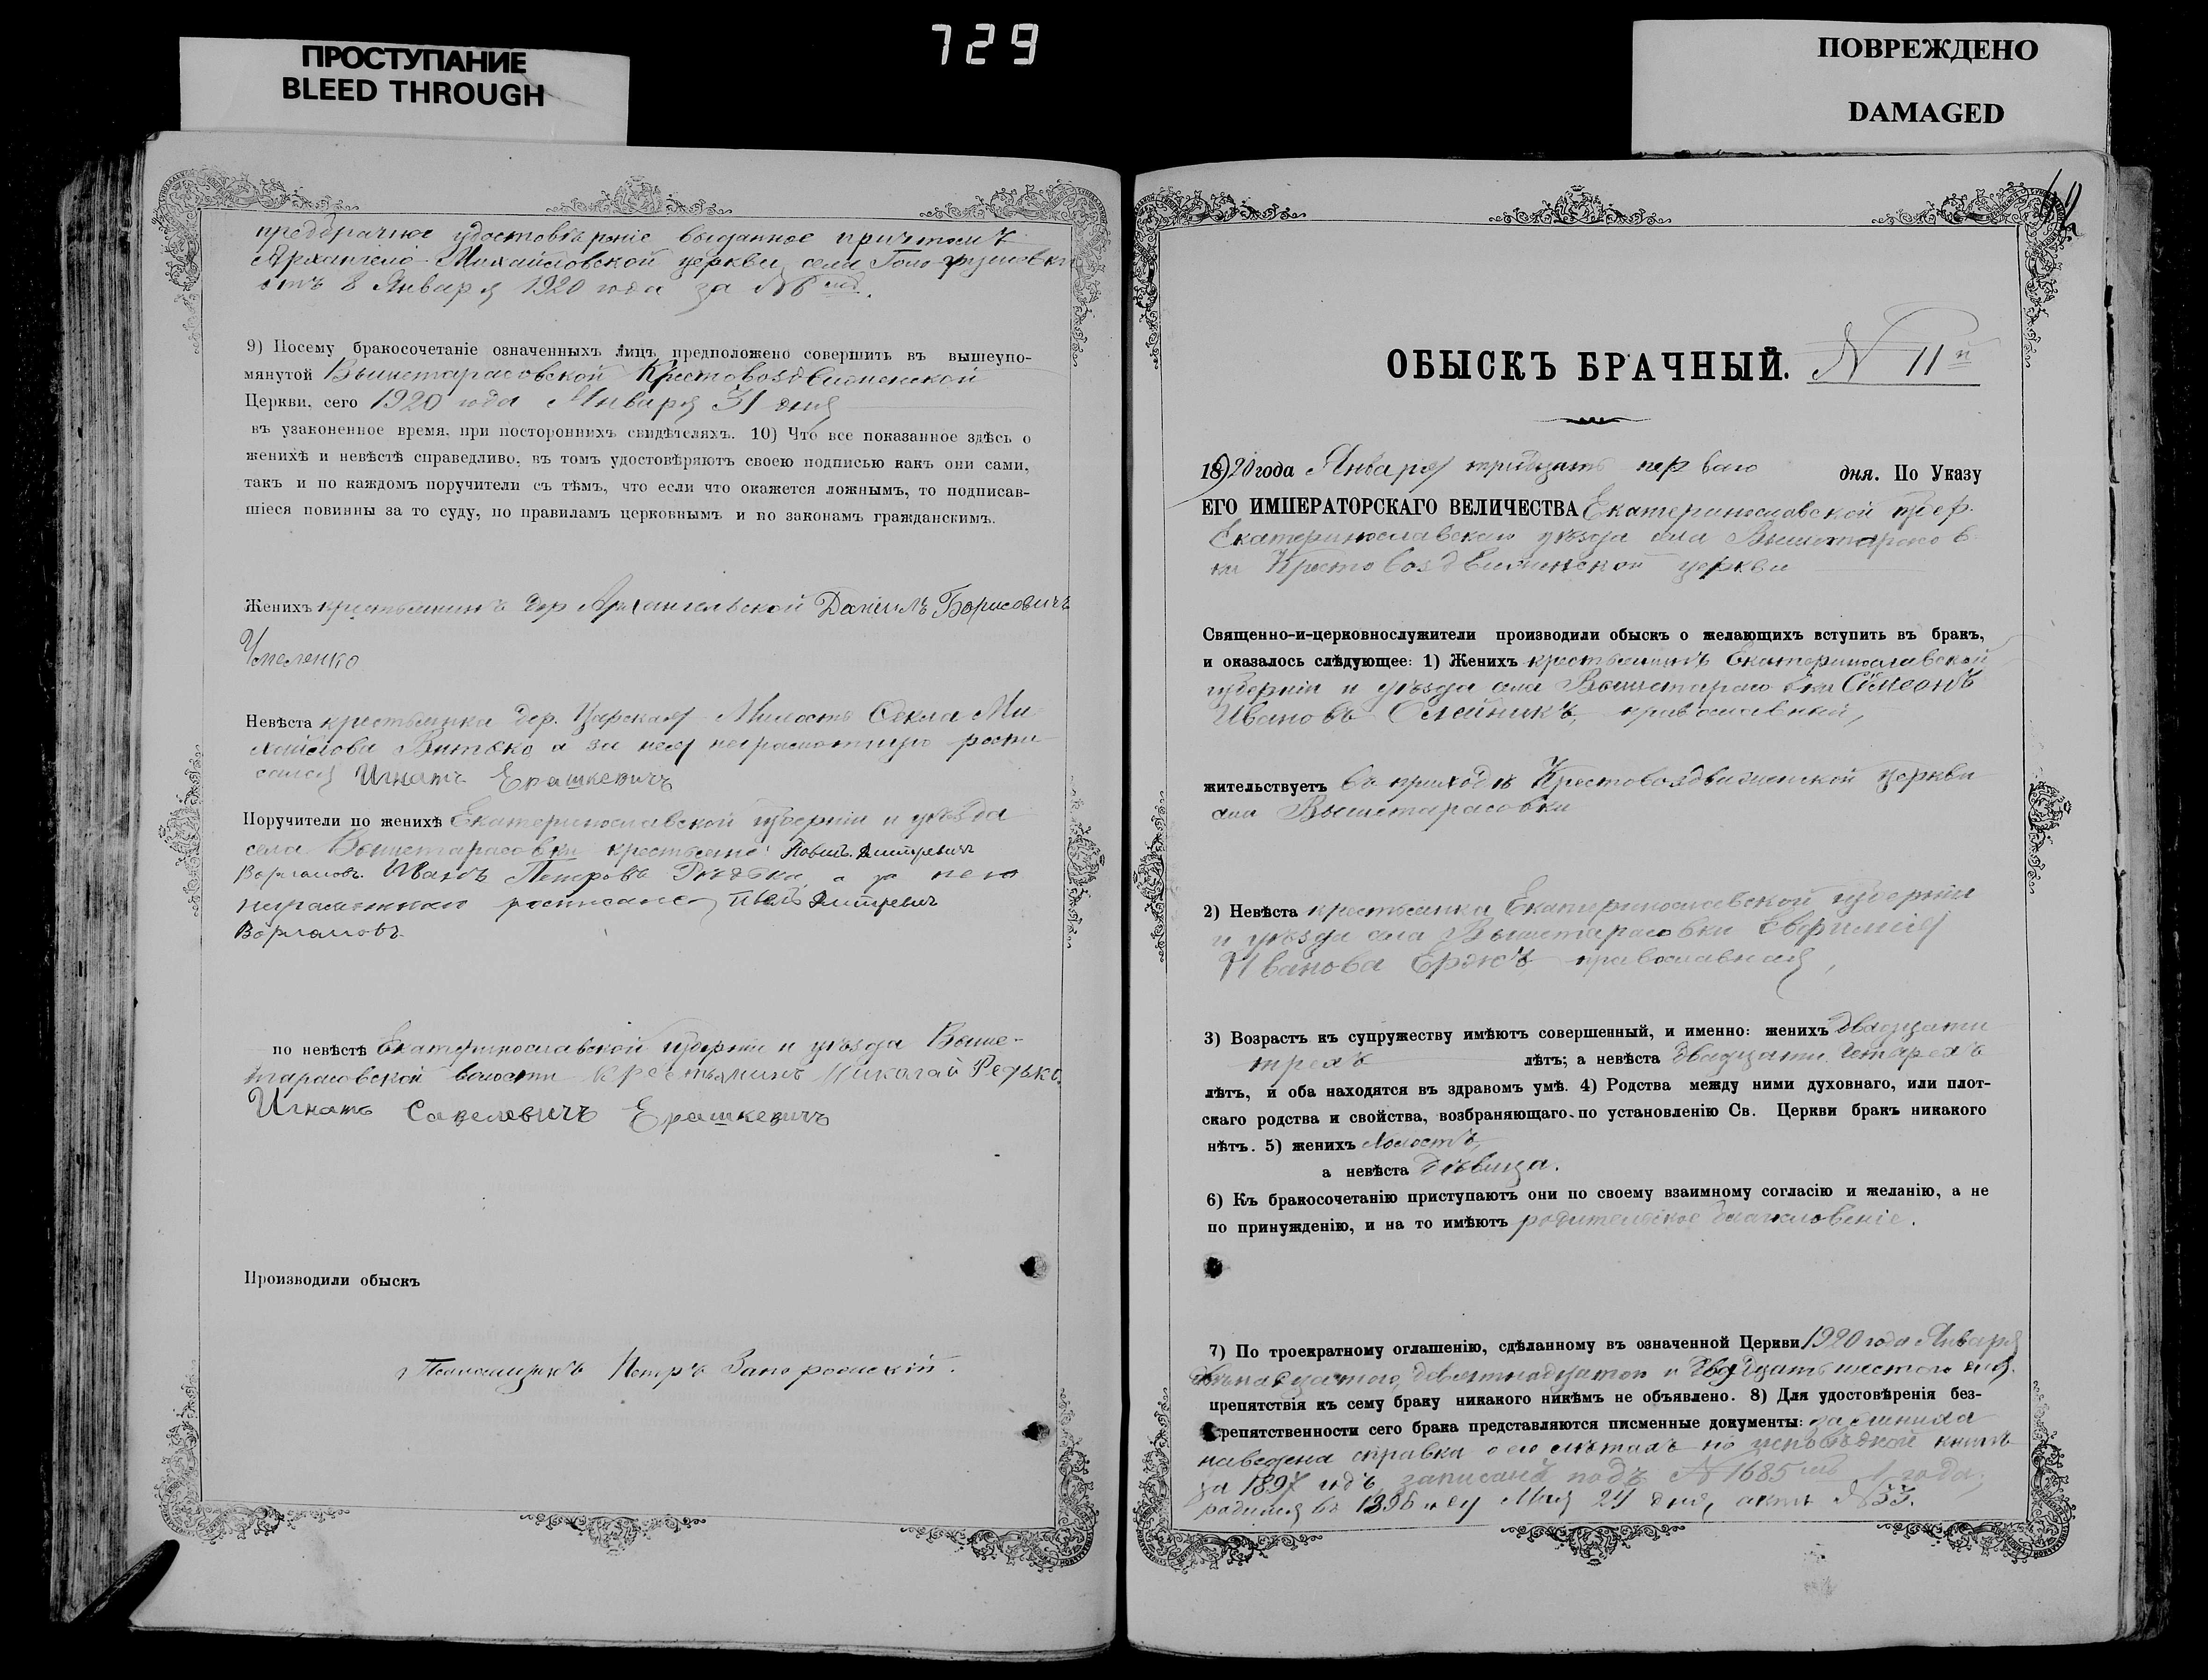 ПРОСТУПАНИЕ
BLEED THROUGH
729
ПОВРЕЖДЕНО
DAMAGED
предбрачное удостовѣреніе выданное причтомъ
Архангело-Михайловской церкви села
отъ 8 Января 1920 года за №6
9) Посему бракосочетаніе означенныхъ лицъ предположено совершить въ вышеупо-
мянутой Вышетарасовской Крестовоздвиженской
Церкви, сего 1920 года Января 31 дня
въ узаконенное время, при постороннихъ свидѣтеляхъ. 10) Что все показанное здѣсь о
женихѣ и невѣстѣ справедливо, въ томъ удостовѣряютъ своею подписью какъ они сами,
такъ и по каждомъ поручители съ тѣмъ, что если что окажется ложнымъ, то подписав-
шіеся повинны за то суду, по правиламъ церковнымъ и по законамъ гражданскимъ.
Женихъ крестьянинъ дер Архангельской Даніилъ Борисовичъ
Невѣста крестьянка дер. Царская Милость Ѳекла Ми-
хайлова Витько а за нею неграмотную роспи-
сался Игнатъ Ерашкевичъ
Поручители по женихѣ Екатеринославской губерніи и уѣзда
села Вышетарасовки крестьяне: Павелъ Дмитревичъ
Варламовъ. Иванъ Петровъ Рѣдька, а за него
неграмотнаго росписался Павелъ Дмитревичъ
Варламовъ.
по невѣстѣ Екатеринославской губерніи и уѣзда Выше-
тарасовской волости Крестьянинъ Николай Редько.
Игнатъ Савелевичъ Ерашкевичъ
Производили обыскъ
Псаломщикъ Петръ Запорожскій.
ОБЫСКЪ БРАЧНЫЙ. N 11й
1920 года Января тридцать перваго дня. По Указу
ЕГО ИМПЕРАТОРСКАГО ВЕЛИЧЕСТВА Екатеринославской губер.
Екатеринославскаго уѣзда села Вышетарасов-
ки Крестовоздвиженской церкви
Священно-и-церковнослужители производили обыскъ о желающихъ вступить въ бракъ,
и оказалось слѣдующее: 1) Женихъ крестьянинъ Екатеринославской
губерніи и уѣзда села Вышетарасовки Симеонъ
Ивановъ Олейникъ, православный,
жительствуетъ въ приходѣ Крестовоздвиженской церкви
села Вышетарасовки
2) Невѣста крестьянка Екатеринославской губерніи
и уѣзда села Вышетарасовки Евфимія
Иванова православная,
3) Возрастъ къ супружеству имѣютъ совершенный, и именно: женихъ двадцати
трехъ лѣтъ; а невѣста двадцати четырехъ
лѣтъ, и оба находятся въ здравомъ умѣ. 4) Родства между ними духовнаго, или плот-
скаго родства и свойства, возбраняющаго по установленію Св. Церкви бракъ никакого
нѣтъ. 5) женихъ холостъ,
а невѣста дѣвица.
6) Къ бракосочетанію приступаютъ они по своему взаимному согласію и желанію, а не
по принужденію, и на то имѣютъ родительское благословеніе.
7) По троекратному оглашенію, сдѣланному въ означенной Церкви 1920 года Января
двѣнадцатого, девятнадцатого и двадцать шестого дня.
препятствія къ сему браку никакого никѣмъ не объявлено. 8) Для удостовѣренія без-
репятственности сего брака представляются писменные документы: за жениха
наведена справка о его лѣтахъ по исповѣдной книгѣ
за 1897 годъ, записанъ подъ №1685 1 года;
родился въ 1896 году Мая 24 дня, актъ №53.